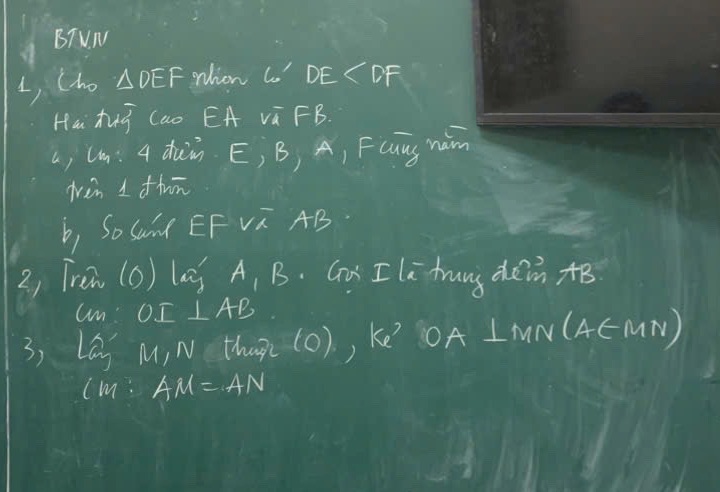 BTVN
1, Cho △DEF nhọn có DE < DF
Hai đường cao EA và FB.
a, cm: 4 điểm E, B, A, F cùng nằm
trên 1 đtròn
b, So sánh EF và AB.
2, Trên (O) lấy A, B. Gọi I là trung điểm AB.
cm: OI ⊥ AB.
3, Lấy M, N thuộc (O), kẻ OA ⊥ MN (A ∈ MN)
cm: AM = AN